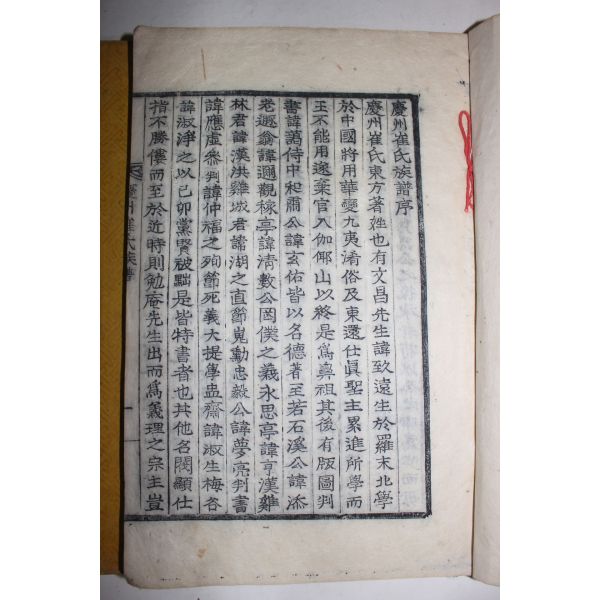 慶州崔氏族譜序
慶州崔氏東方著姓也有文昌先生諱致遠生於羅末北學
於中國將用華變九夷淆俗及東還仕眞聖主累進所學而
王不能用遂棄官入伽倻山以終是爲鼻祖其後有版圖判
書諱蔼侍中和肅公諱玄佑皆以名德著至若石溪公諱添
老遯翁諱邇觀稼亭諱淸數公罔僕之義永思亭諱亨漢雞
林君諱漢洪雞城君諱湖之直節嵬勳忠毅公諱夢亮判書
諱應虛參判諱仲福之殉節死義大提學盅齋諱淑生梅谷
諱淑淨之以己卯黨賢被黜是皆特書者也其他名閥顯仕
指不勝僂而至於近時則勉庵先生出而爲義理之宗主豈
慶州崔氏族譜
一